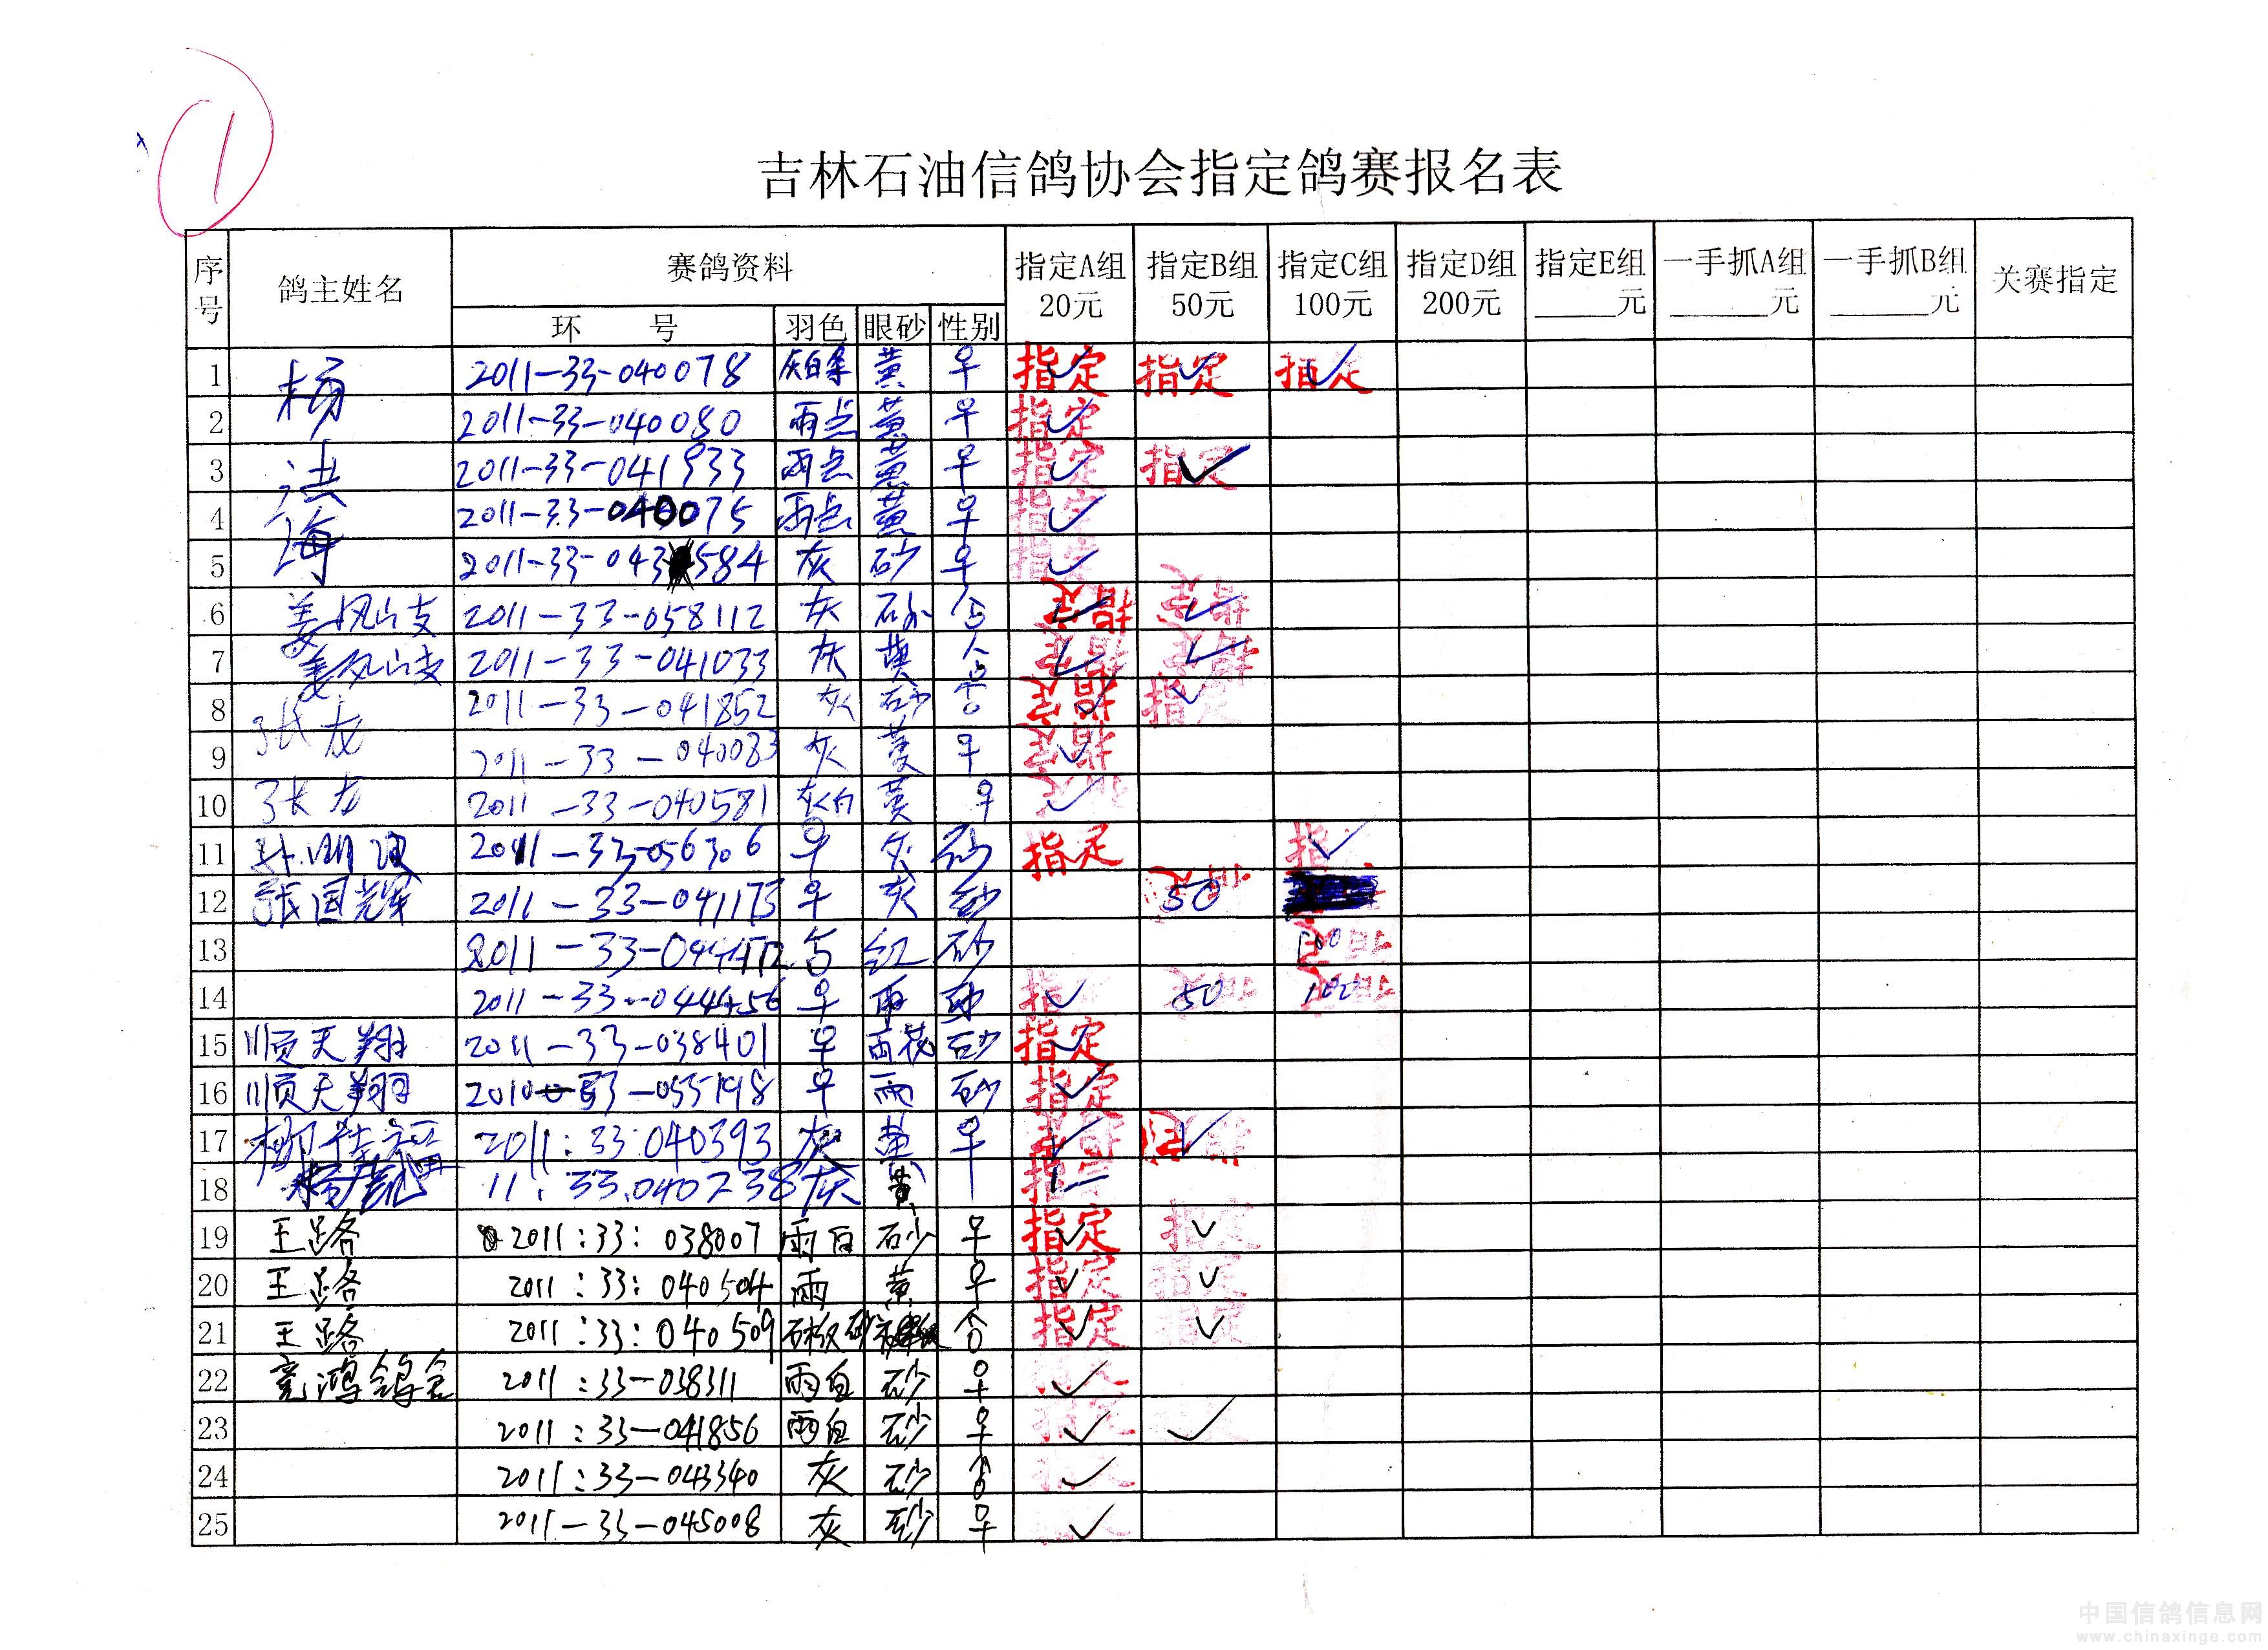 1
吉林石油信鸽协会指定鸽赛报名表
序号 鸽主姓名 赛鸽资料 指定A组 20元 指定B组 50元 指定C组 100元 指定D组 200元 指定E组 ____元 一手抓A组 ____元 一手抓B组 ____元 关赛指定
环 号 羽色 眼砂 性别
1 杨洪海 2011-33-040078 灰白条 黄 ♀ 指定✓ 指定✓ 指定✓
2 2011-33-040080 雨点 黄 ♀ 指定✓
3 2011-33-041933 雨点 黄 ♀ 指定✓ 指定✓
4 2011-33-040075 雨点 黄 ♀ 指定✓
5 2011-33-043584 灰 砂 ♀ 指定✓
6 姜 2011-33-058112 灰 砂 指定✓ 指定✓
7 姜 2011-33-041033 灰 黄 指定✓ 指定✓
8 张龙 2011-33-041852 灰 砂 指定✓ 指定✓
9 2011-33-040083 灰 黄 ♀ 指定✓
10 张龙 2011-33-040581 灰白 黄 ♀ ✓
11 2011-33-056306 ♀ 灰 砂 指定 指✓
12 张国辉 2011-33-041173 ♀ 灰 砂 50
13 2011-33- 红 砂 100
14 2011-33-044456 ♀ 雨 砂 指✓ 50 100
15 顺天翔 2011-33-038401 ♀ 雨花 砂 指定✓
16 顺天翔 2010-33-055198 ♀ 雨 砂 指定✓
17 柳 2011:33:040393 灰 黄 ♀ ✓ ✓
18 11:33.040738 灰 黄 指定
19 王路 2011:33:038007 雨白 砂 ♀ 指定✓ 指定✓
20 王路 2011:33:040504 雨 黄 ♀ 指定✓ 指定✓
21 王路 2011:33:040509 砂 指定✓ 指定✓
22 竞鸿鸽舍 2011:33-038311 雨白 砂 ♀ ✓
23 2011:33-041856 雨白 砂 ♀ ✓ ✓
24 2011:33-043340 灰 砂 ✓
25 2011-33-045008 灰 砂 ♀ ✓
中国信鸽信息网
www.chinaxinge.com